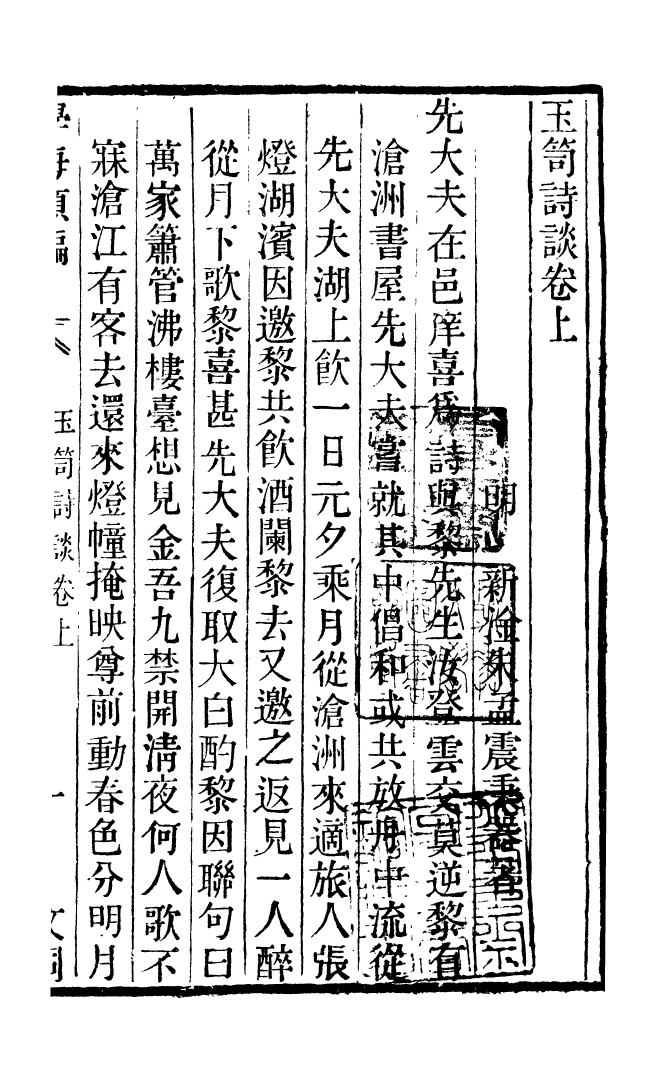 玉笥詩談卷上
明　新淦朱孟震秉器著
先大夫在邑庠喜爲詩與黎先生汝登雲交莫逆黎有
滄洲書屋先大夫嘗就其中倡和或共放舟中流從
先大夫湖上飮一日元夕乘月從滄洲來適旅人張
燈湖濱因邀黎共飮酒闌黎去又邀之返見一人醉
從月下歌黎喜甚先大夫復取大白酌黎因聯句曰
萬家簫管沸樓臺想見金吾九禁開淸夜何人歌不
寐滄江有客去還來燈幢掩映尊前動春色分明月
學海類編　玉笥詩談卷上　一